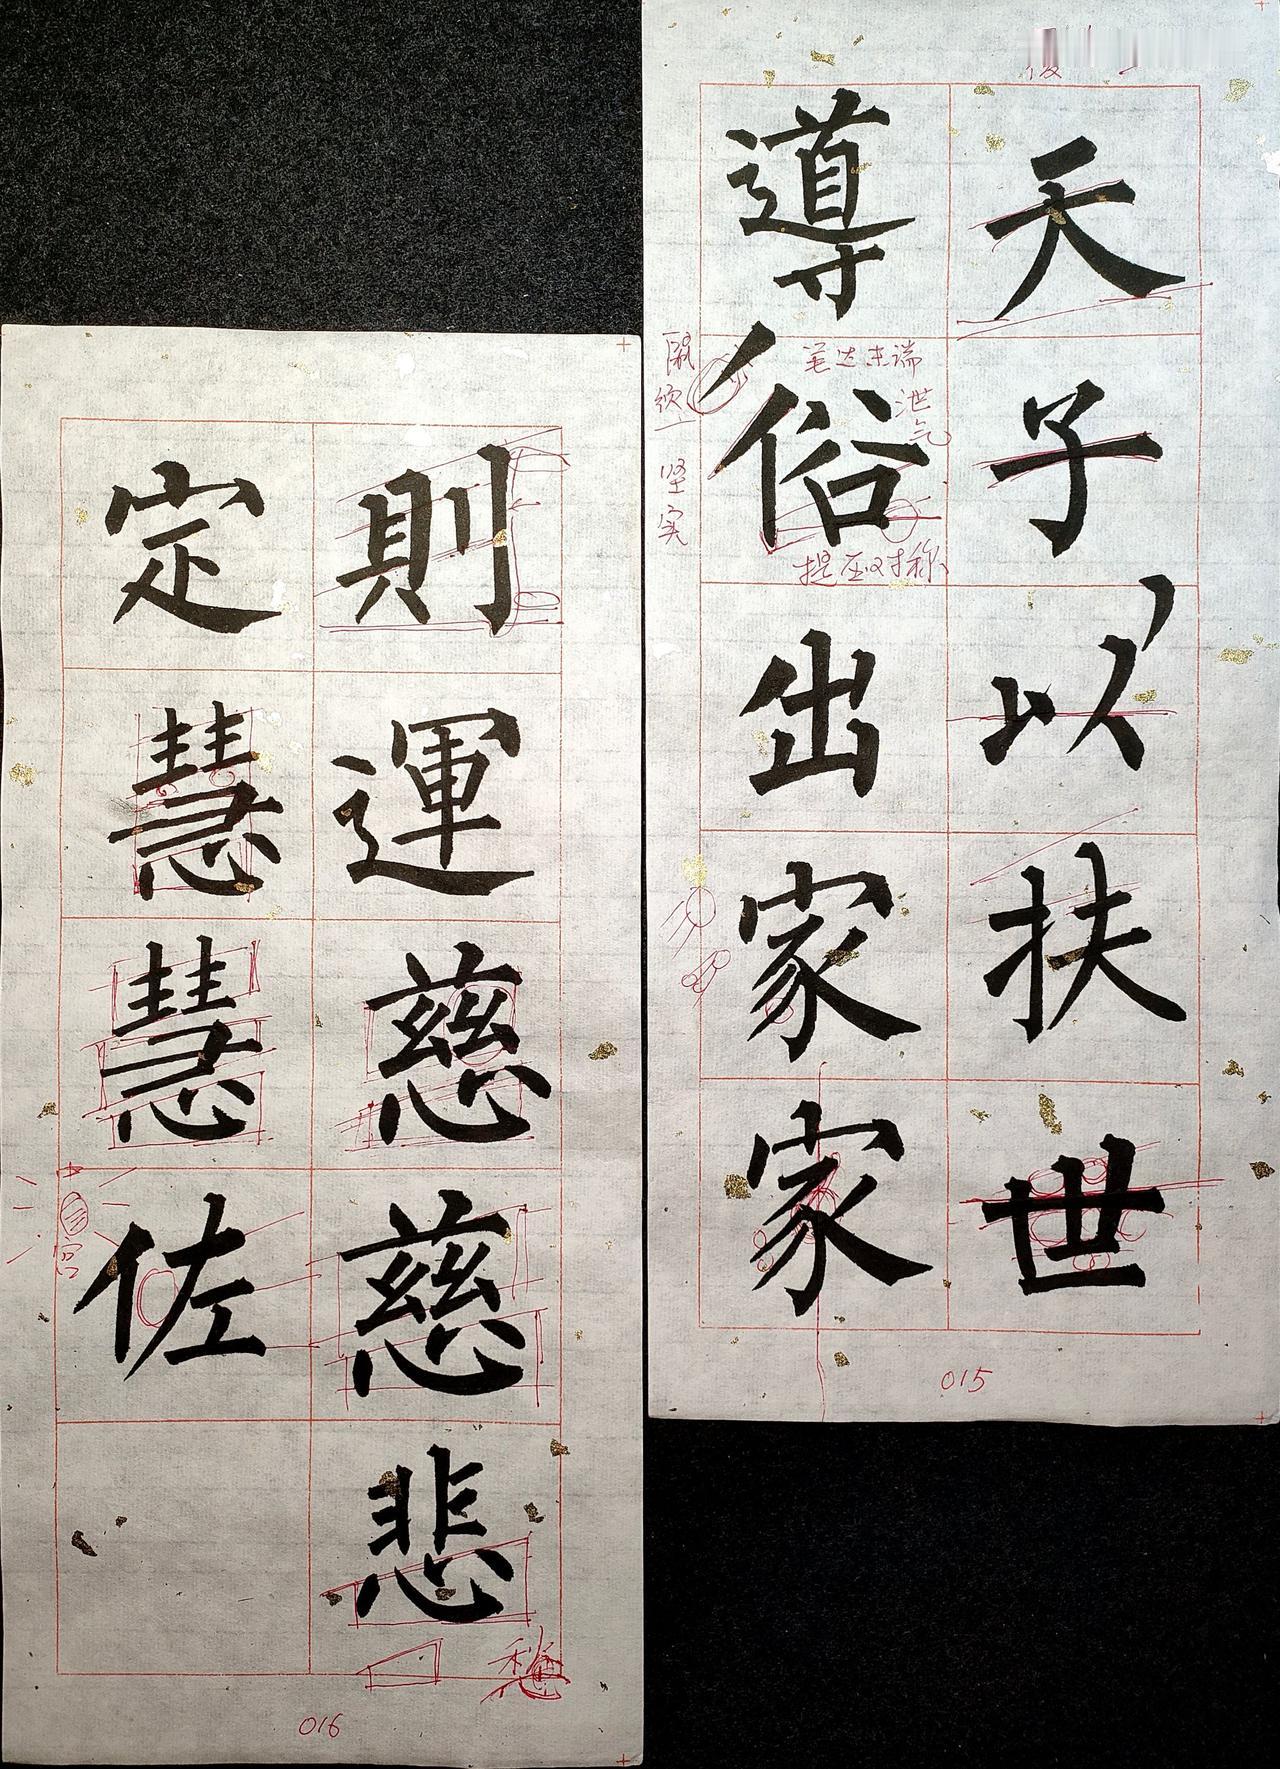 天子以扶世
導俗出家家
笔达末端
泄气
坚实
提 对称
015
則運慈慈悲
定慧慧佐
中宫
016